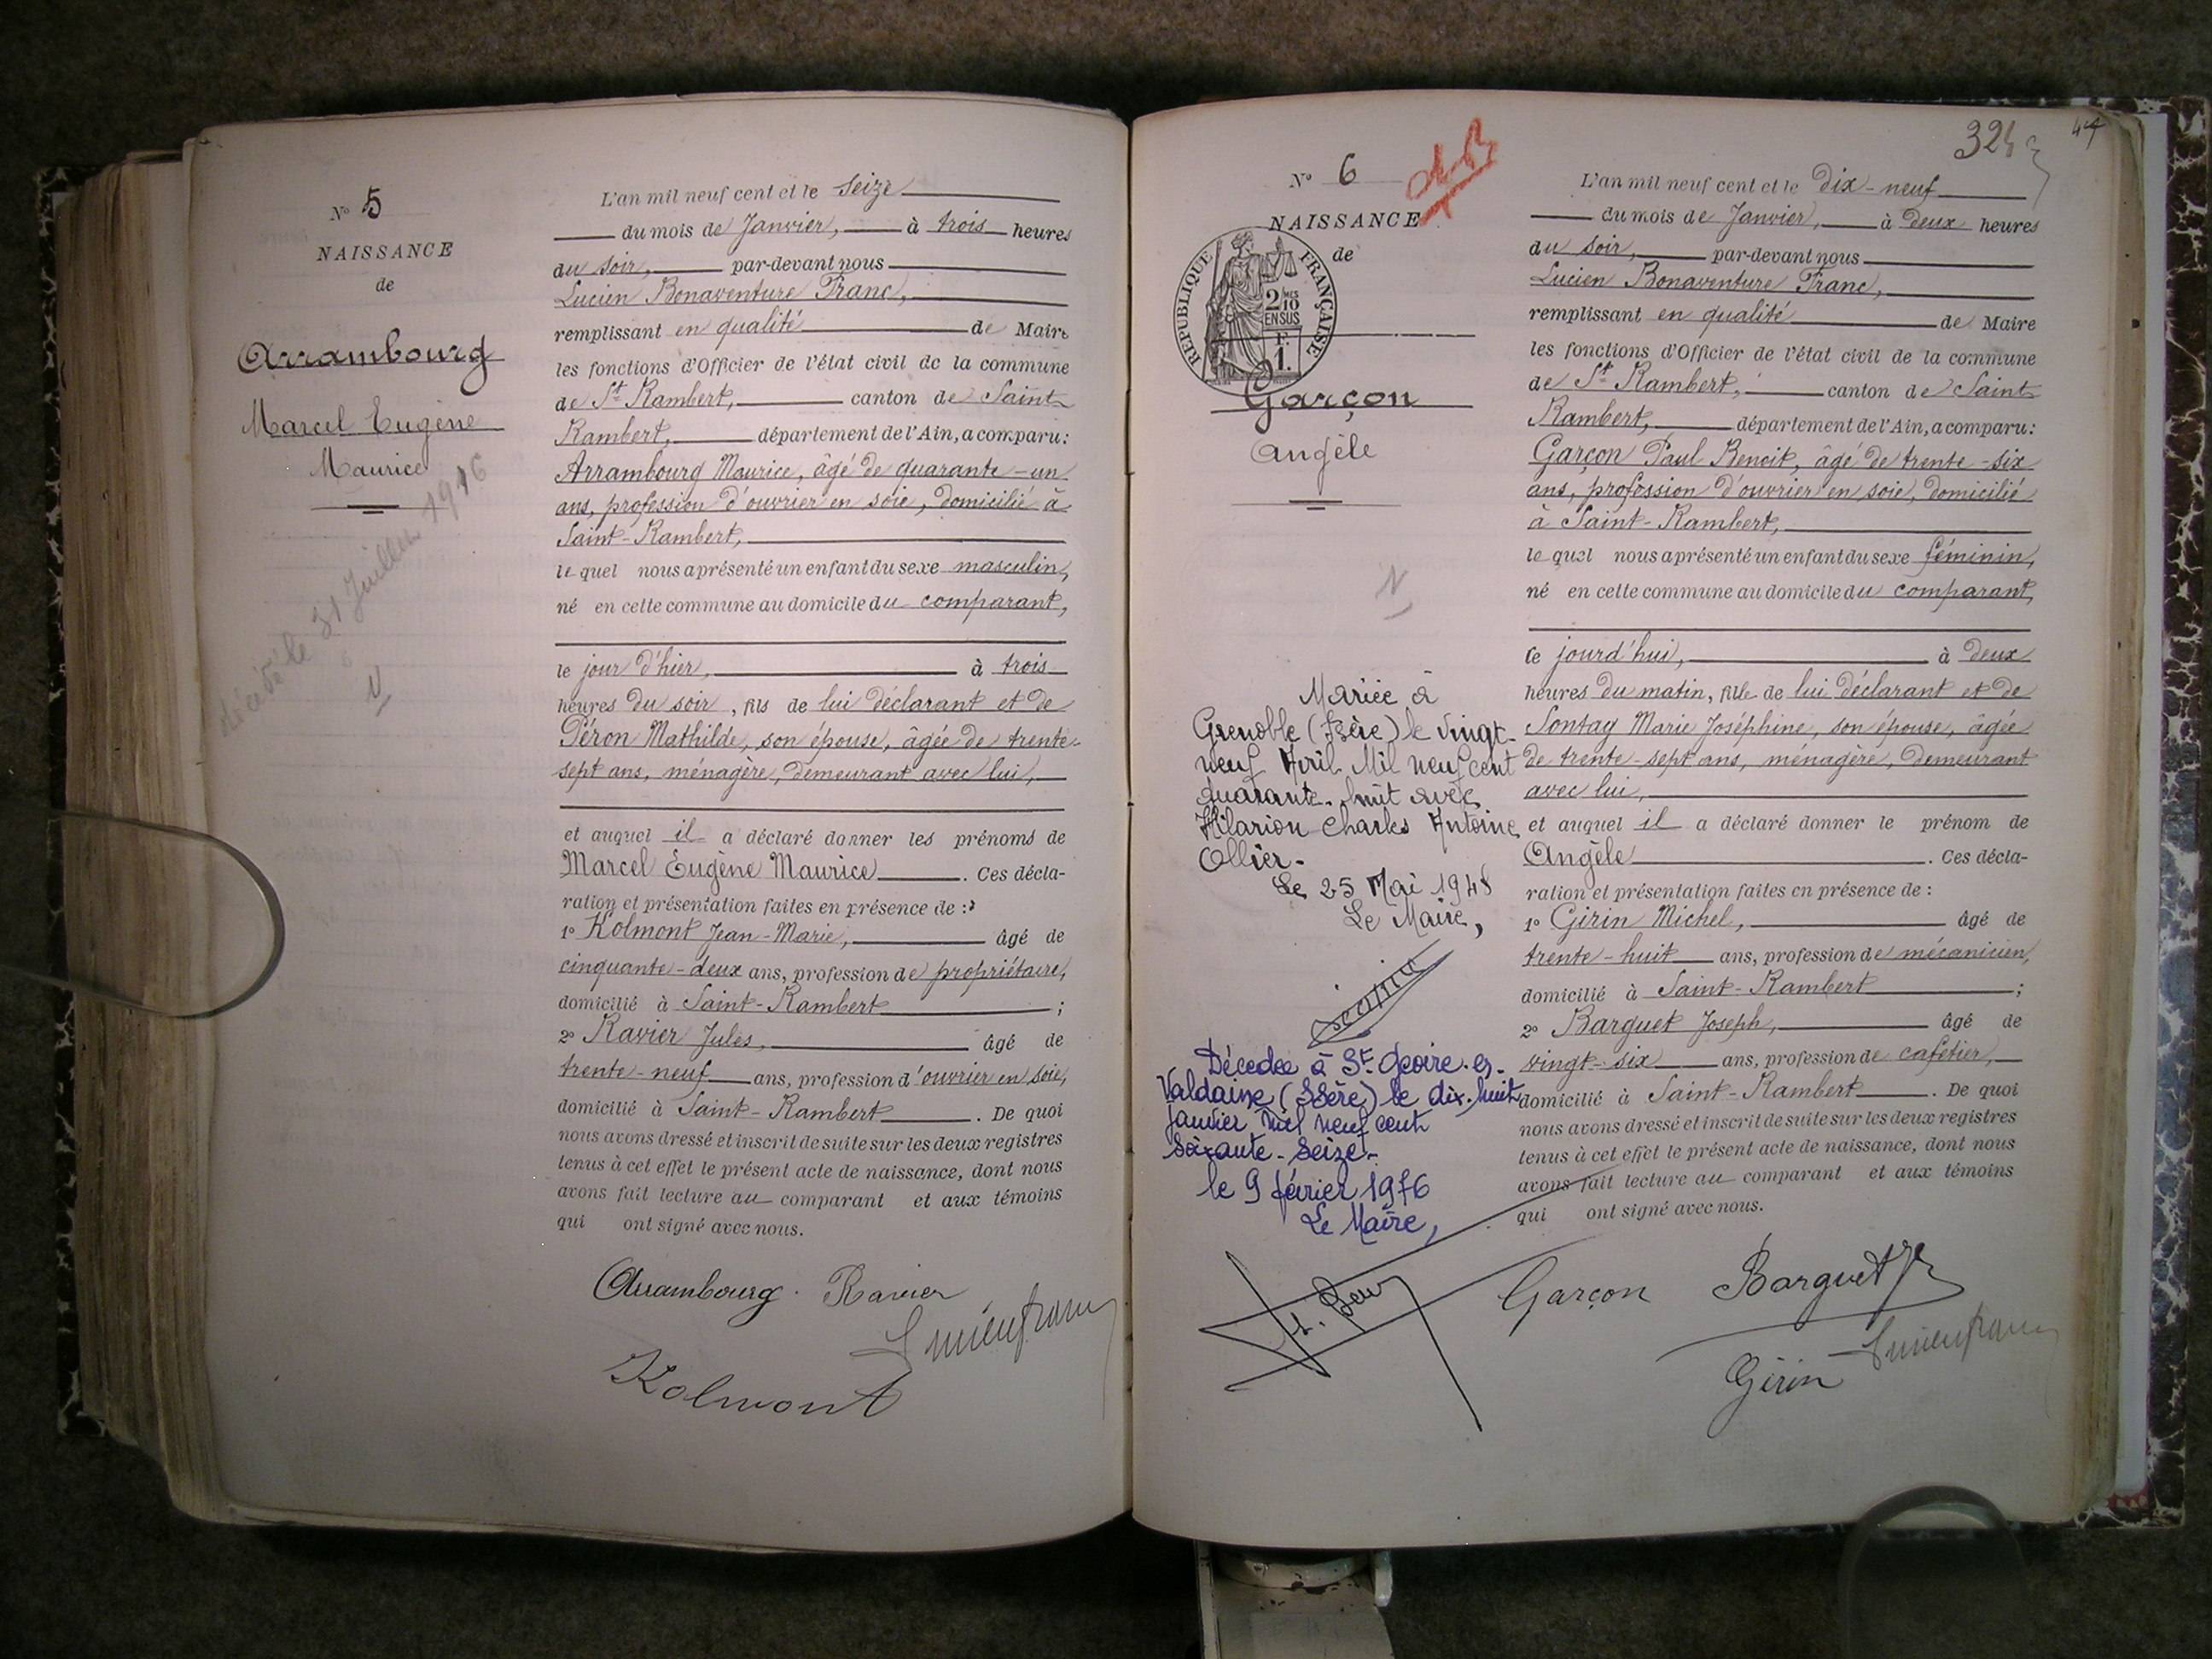 N° 5
NAISSANCE
de
Arrambourg
Marcel Eugène
Maurice
décédé le 31 Juillet 1916
N
L'an mil neuf cent et le seize
du mois de Janvier, à trois heures
du soir, par-devant nous
Lucien Bonaventure Franc,
remplissant en qualité de Maire
les fonctions d'Officier de l'état civil de la commune
de St Rambert, canton de Saint
Rambert, département de l'Ain, a comparu:
Arrambourg Maurice, âgé de quarante-un
ans, profession d'ouvrier en soie, domicilié à
Saint-Rambert,
lequel nous a présenté un enfant du sexe masculin,
né en cette commune au domicile du comparant,
le jour d'hier, à trois
heures du soir, fils de lui déclarant et de
Péron Mathilde, son épouse, âgée de trente-
sept ans, ménagère, demeurant avec lui,
et auquel il a déclaré donner les prénoms de
Marcel Eugène Maurice. Ces décla-
ration et présentation faites en présence de :
1° Kolmont Jean-Marie, âgé de
cinquante-deux ans, profession de propriétaire,
domicilié à Saint-Rambert ;
2° Ravier Jules, âgé de
trente-neuf ans, profession d'ouvrier en soie,
domicilié à Saint-Rambert. De quoi
nous avons dressé et inscrit de suite sur les deux registres
tenus à cet effet le présent acte de naissance, dont nous
avons fait lecture au comparant et aux témoins
qui ont signé avec nous.
Arrambourg. Ravier
Lucien franc
Kolmont
324
N° 6
NAISSANCE
de
RÉPUBLIQUE FRANÇAISE
2 MES
10
EN SUS
1 F.
Garçon
Angèle
N
Mariée à
Grenoble (Isère) le vingt-
neuf Avril Mil neuf cent
quarante-huit avec
Hilarion Charles Antoine
Ollier.
Le 25 Mai 1948
Le Maire,
Décédée à St Geoire-en-
Valdaine (Isère) le dix-huit
janvier mil neuf cent
soixante-seize-
le 9 février 1976
Le Maire,
L'an mil neuf cent et le dix-neuf
du mois de Janvier, à deux heures
du soir, par-devant nous
Lucien Bonaventure Franc,
remplissant en qualité de Maire
les fonctions d'Officier de l'état civil de la commune
de St Rambert, canton de Saint
Rambert, département de l'Ain, a comparu:
Garçon Paul Benoit, âgé de trente-six
ans, profession d'ouvrier en soie, domicilié
à Saint-Rambert,
lequel nous a présenté un enfant du sexe féminin,
né en cette commune au domicile du comparant,
le jourd'hui, à deux
heures du matin, fille de lui déclarant et de
Sontag Marie Joséphine, son épouse, âgée
de trente-sept ans, ménagère, demeurant
avec lui,
et auquel il a déclaré donner le prénom de
Angèle. Ces décla-
ration et présentation faites en présence de :
1° Girin Michel, âgé de
trente-huit ans, profession de mécanicien,
domicilié à Saint-Rambert ;
2° Barguet Joseph, âgé de
vingt-six ans, profession de cafetier,
domicilié à Saint-Rambert. De quoi
nous avons dressé et inscrit de suite sur les deux registres
tenus à cet effet le présent acte de naissance, dont nous
avons fait lecture au comparant et aux témoins
qui ont signé avec nous.
Garçon Barguet
Lucien franc
Girin